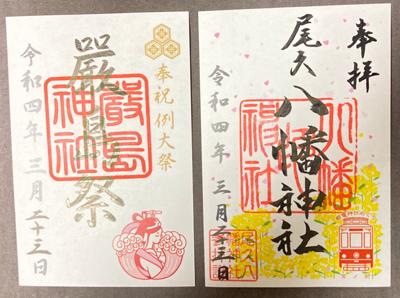 奉祝例大祭
嚴島祭
嚴島
神社
令和四年三月二十三日
奉拝
尾久八幡神社
八幡
神社
令和四年三月二十三日